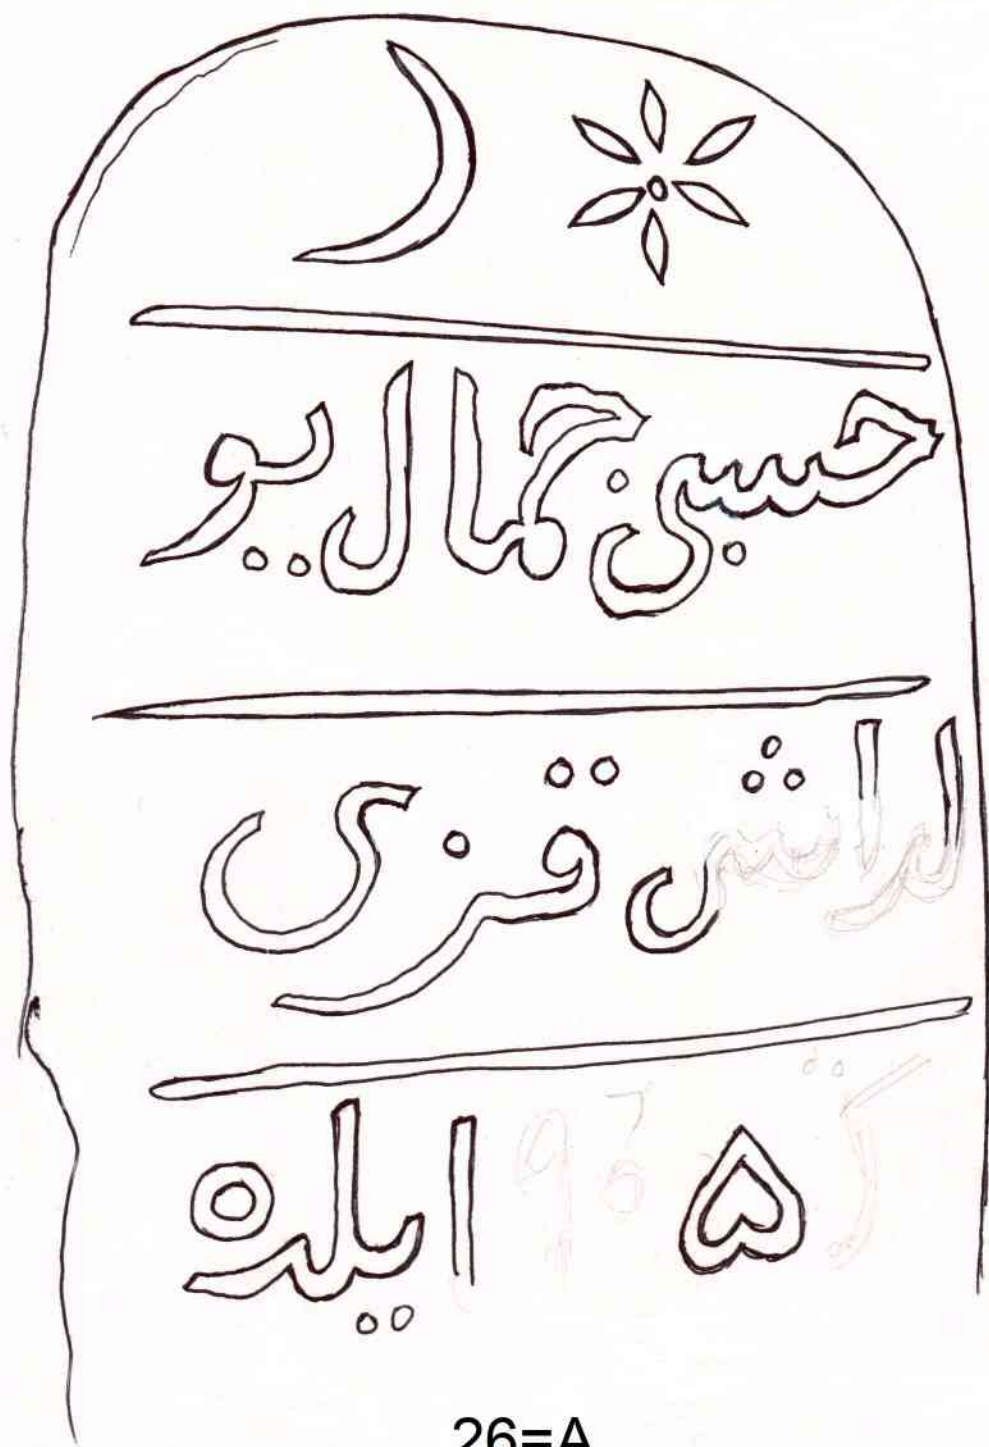 حسبی جمال یو
لداش قزی
۵ ایلده
26=A